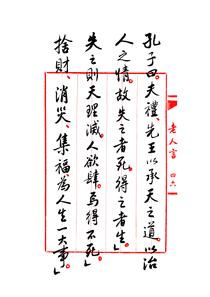 孔子曰夫禮、先王以承天之道。以治
人之情。故失之者死。得之者生」
失之則天理滅。人欲肆焉得不死」
捨財、消災、集福、為人生一大事」
老人言 四六